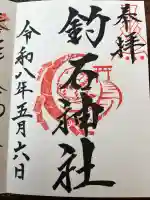 奉拝
釣石神社
令和八年五月六日